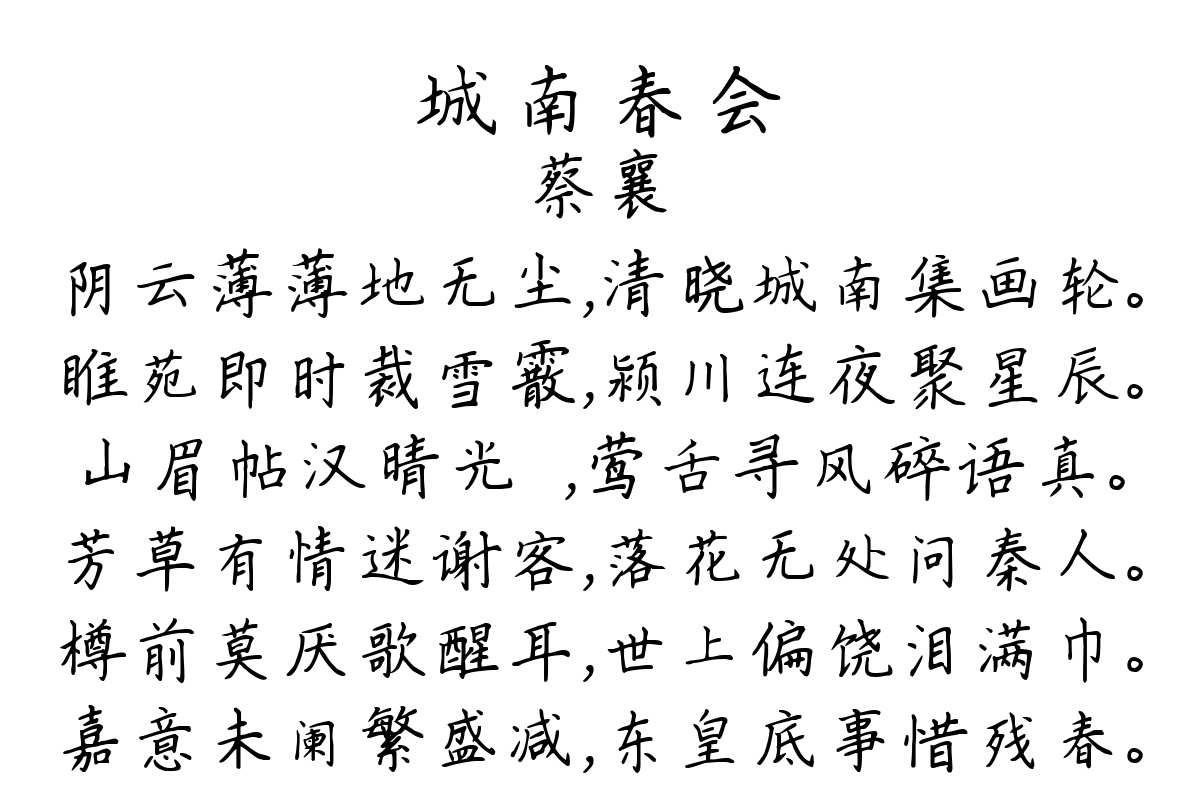 城南春会
蔡襄
阴云薄薄地无尘,清晓城南集画轮。
睢苑即时裁雪霰,颍川连夜聚星辰。
山眉帖汉晴光 ,莺舌寻风碎语真。
芳草有情迷谢客,落花无处问秦人。
樽前莫厌歌醒耳,世上偏饶泪满巾。
嘉意未阑繁盛减,东皇底事惜残春。